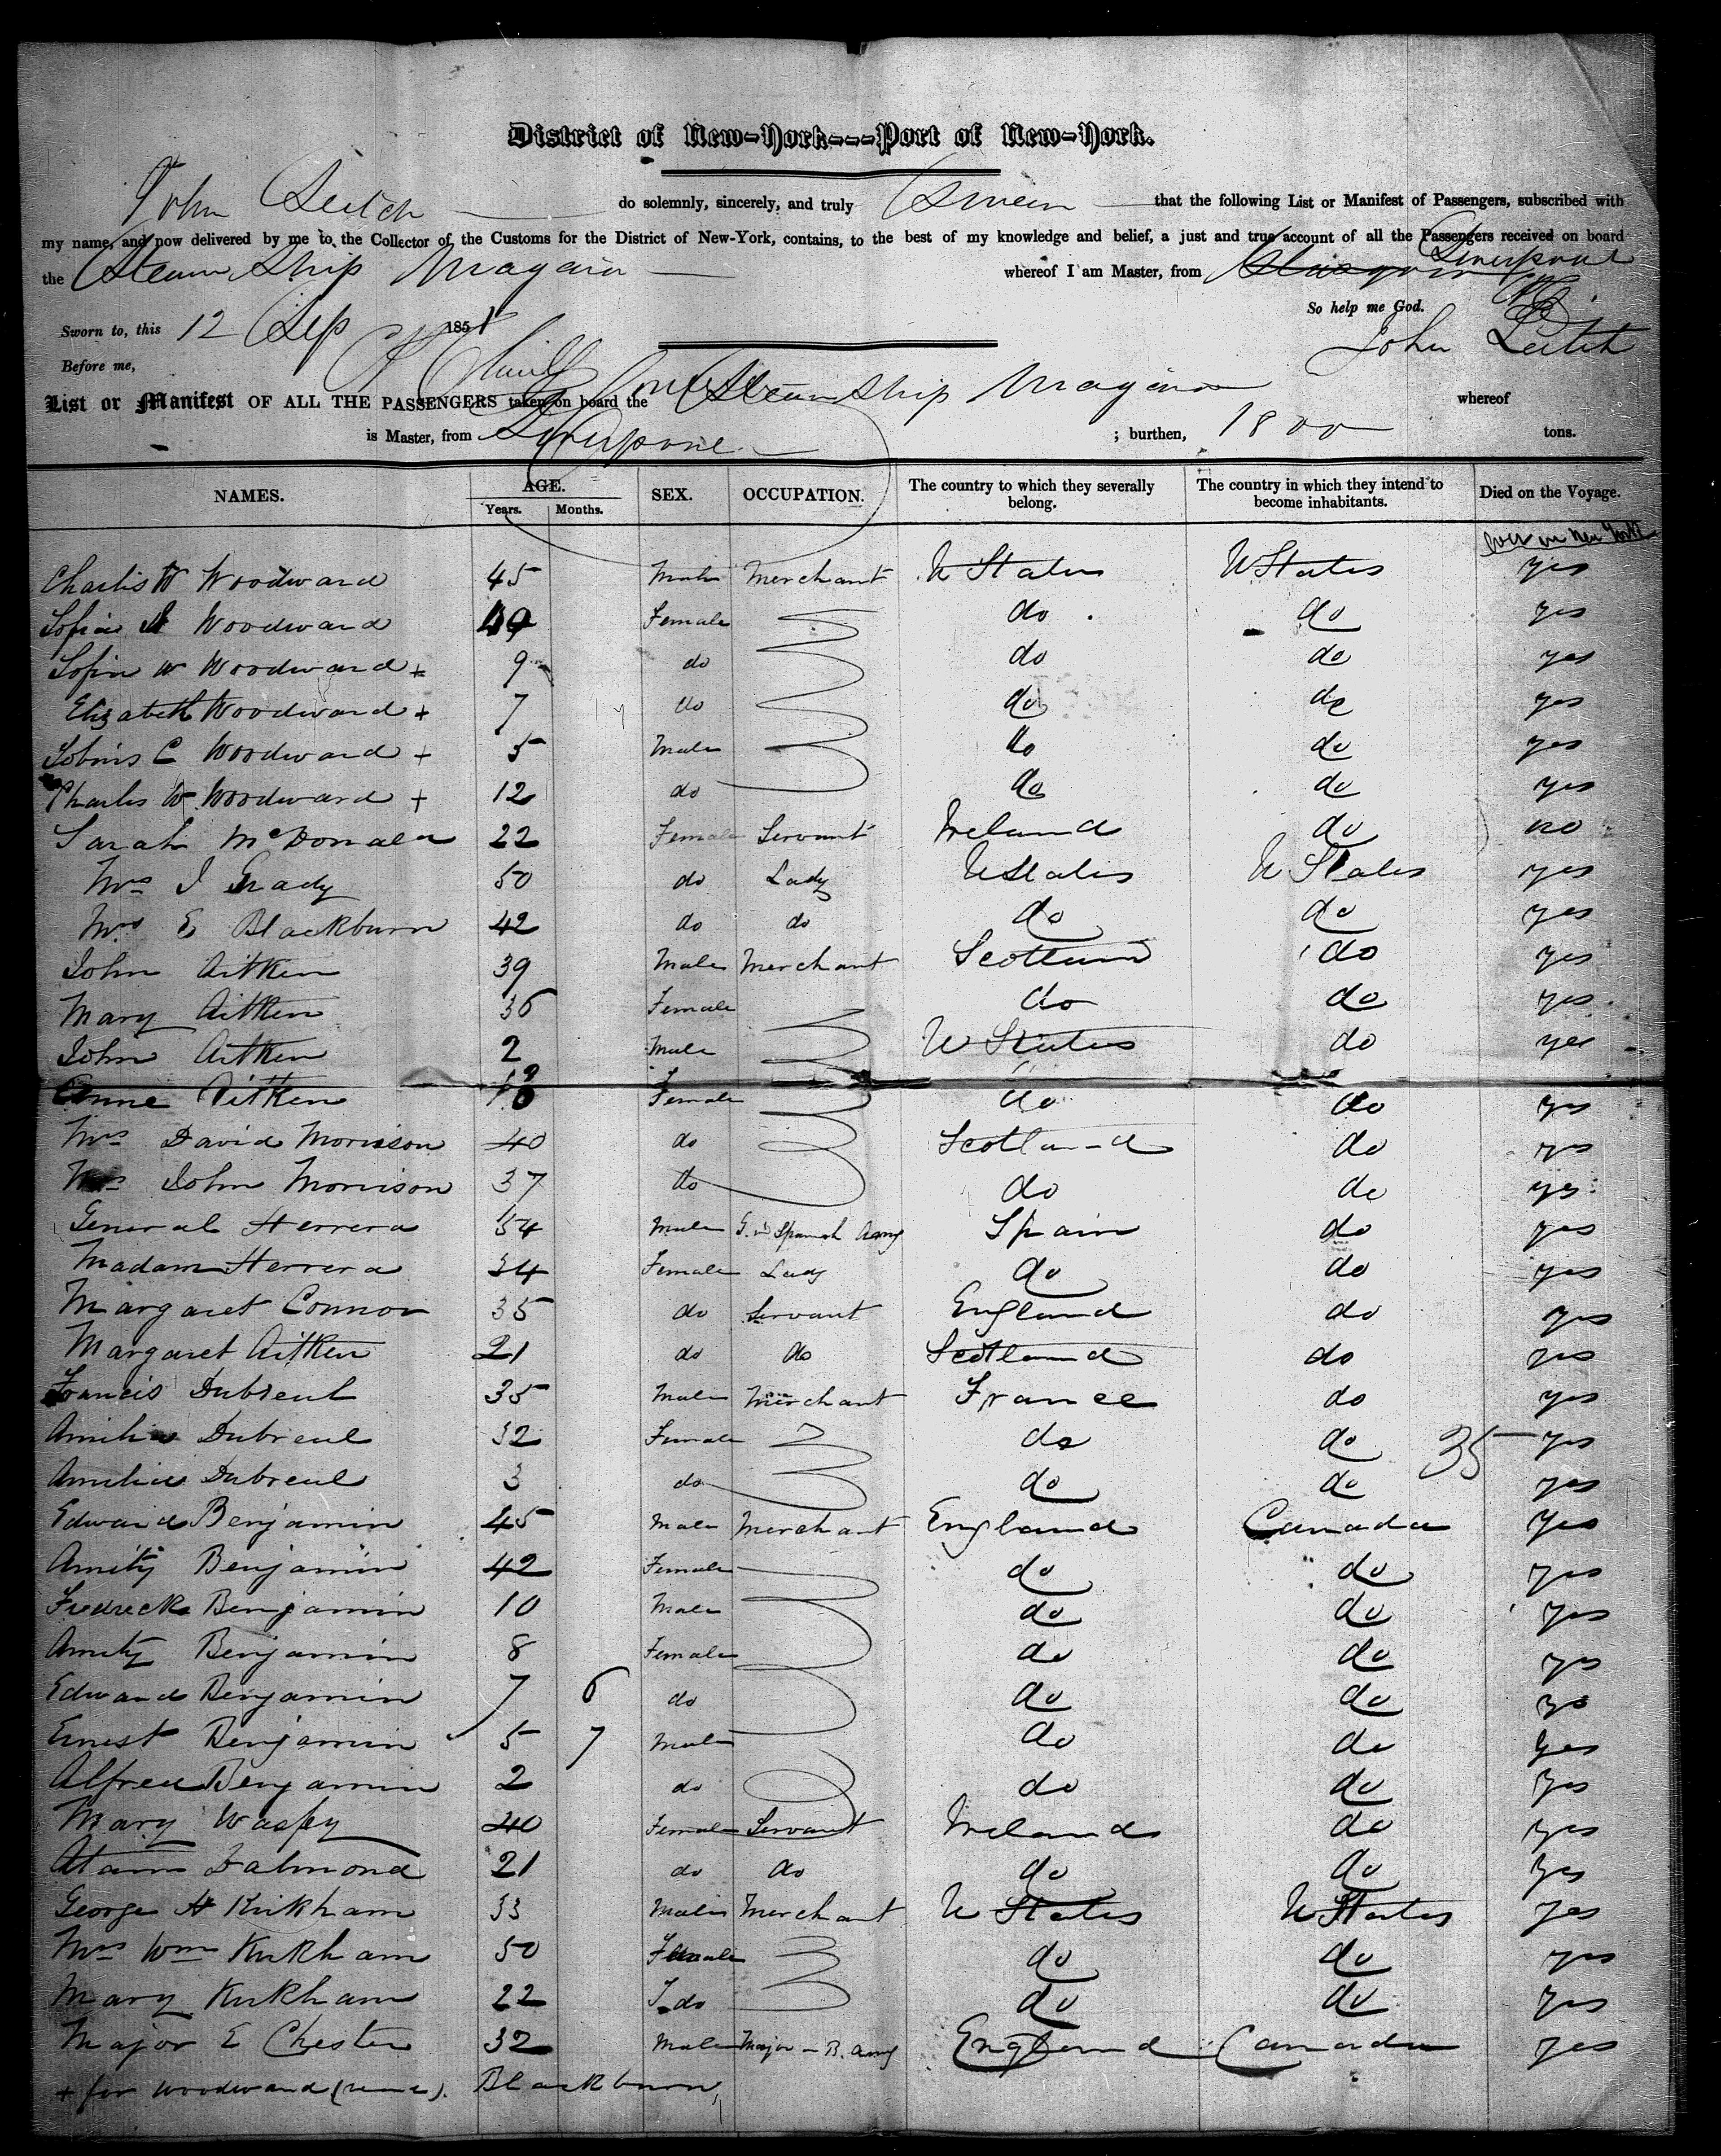 District of New-York---Port of New-York.
John Leitch do solemnly, sincerely, and truly Swear that the following List or Manifest of Passengers, subscribed with
my name, and now delivered by me to the Collector of the Customs for the District of New-York, contains, to the best of my knowledge and belief, a just and true account of all the Passengers received on board
the Steam Ship Niagara whereof I am Master, from Glasgow Liverpool
So help me God.
Sworn to, this 12 Sep 1851 John Leitch
Before me,
List or Manifest OF ALL THE PASSENGERS taken on board the Steam Ship Niagara whereof
is Master, from Liverpool ; burthen, 1800 tons.
NAMES. AGE. SEX. OCCUPATION. The country to which they severally belong. The country in which they intend to become inhabitants. Died on the Voyage.
Years. Months.
ever in New York
Charles W Woodward 45 Male Merchant U States U States yes
Sofia Woodward Female do do yes
Sofia W Woodward + 9 do do do yes
Elizabeth Woodward + 7 do do do yes
C Woodward + 5 Male do do yes
Charles W Woodward + 12 do do do yes
Sarah McDonald 22 Female Servant Ireland do no
Mrs I Grady 50 do Lady U States U States yes
Mrs E Blackburn 42 do do do do yes
John Aitken 39 Male Merchant Scotland do yes
Mary Aitken 36 Female do do yes
John Aitken 2 Male U States do yes
Anne Aitken Female do do yes
Mrs David Morrison 40 do Scotland do yes
Mrs John Morrison 37 do do do yes
General Herrera 54 Male G. in Spanish Army Spain do yes
Madam Herrera 34 Female Lady do do yes
Margaret Connor 35 do Servant England do yes
Margaret Aitken 21 do do Scotland do yes
Francis Dubreul 35 Male Merchant France do yes
Amelia Dubreul 32 Female do do 35 yes
Amelia Dubreul 3 do do do yes
Edward Benjamin 45 Male Merchant England Canada yes
Amity Benjamin 42 Female do do yes
Fredrick Benjamin 10 Male do do yes
Amity Benjamin 8 Female do do yes
Edward Benjamin 7 6 do do do yes
Ernest Benjamin 5 7 Male do do yes
Alfred Benjamin 2 do do do yes
Mary 40 Female Servant Ireland do yes
21 do do do do yes
George H Kirkham 33 Male Merchant U States U States yes
Mrs Wm Kirkham 50 Female do do yes
Mary Kirkham 22 do do do yes
Major E Chester 32 Male Major - B. Army England Canada yes
+ for Woodward (read). Blackburn,